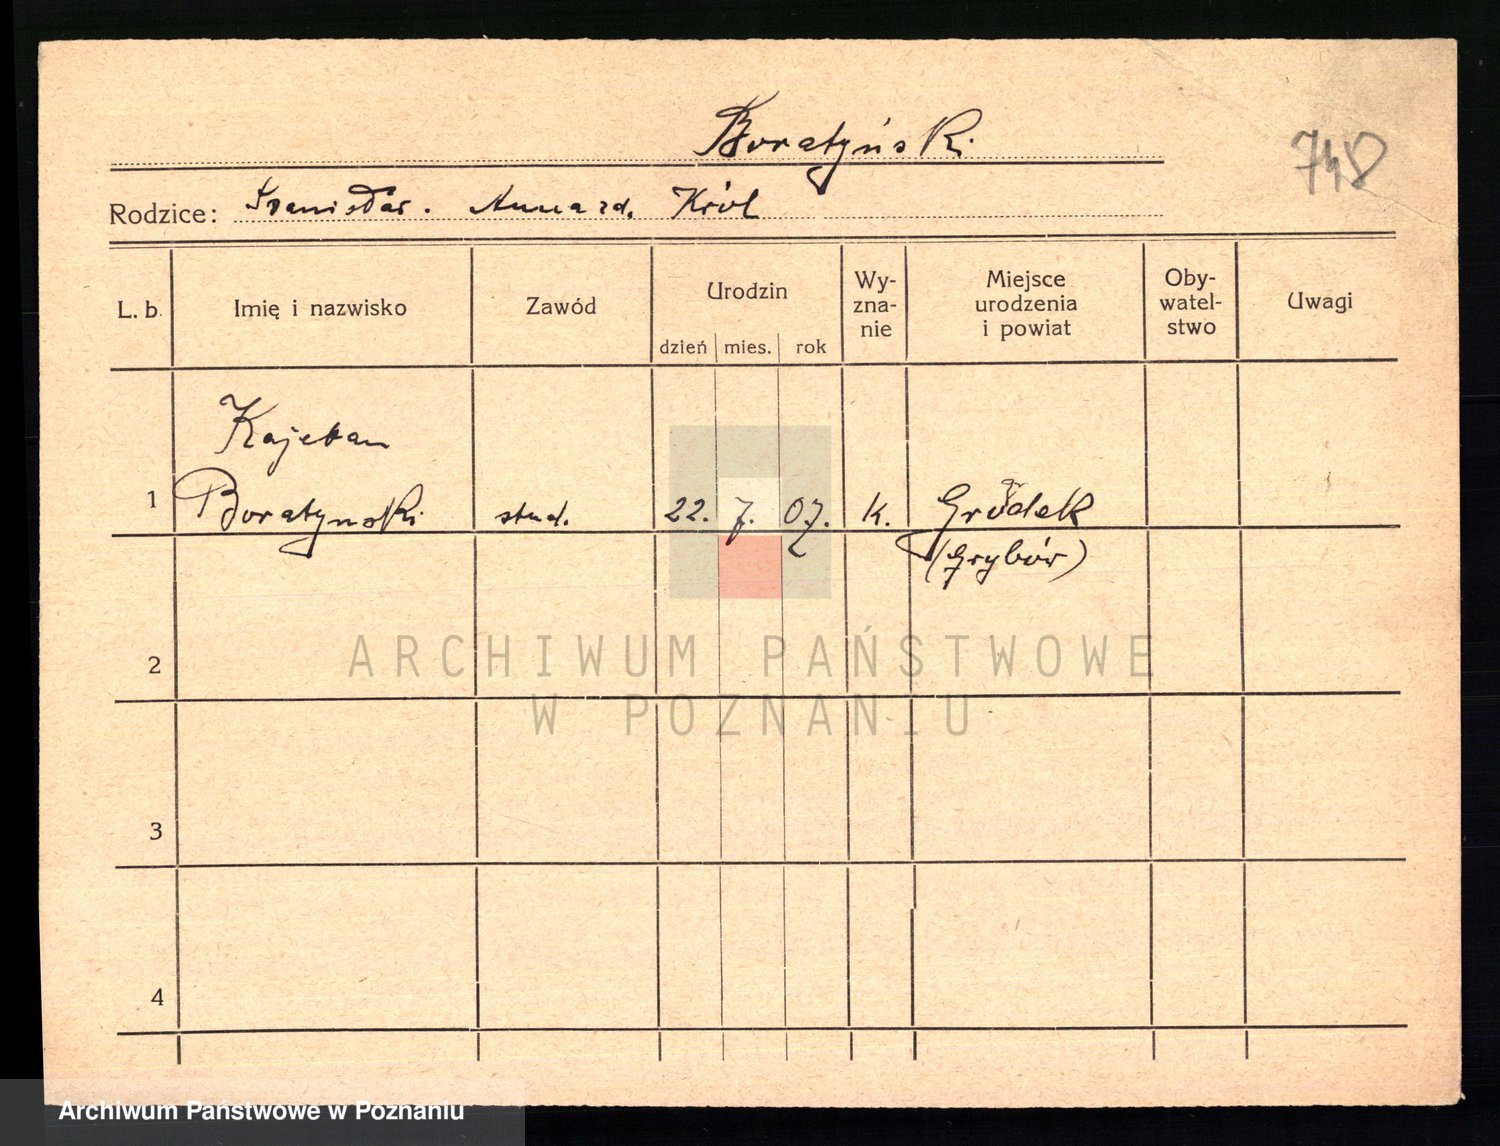 Boratyński.
748
Rodzice: Stanisław. Anna zd. Król
L. b. Imię i nazwisko Zawód Urodzin dzień mies. rok Wy-zna-nie Miejsce urodzenia i powiat Oby-watel-stwo Uwagi
Kajetan
1 Boratynski stud. 22. 7. 07. k. Gródek
(Grybów)
2
ARCHIWUM PAŃSTWOWE
W POZNANIU
3
4
Archiwum Państwowe w Poznaniu